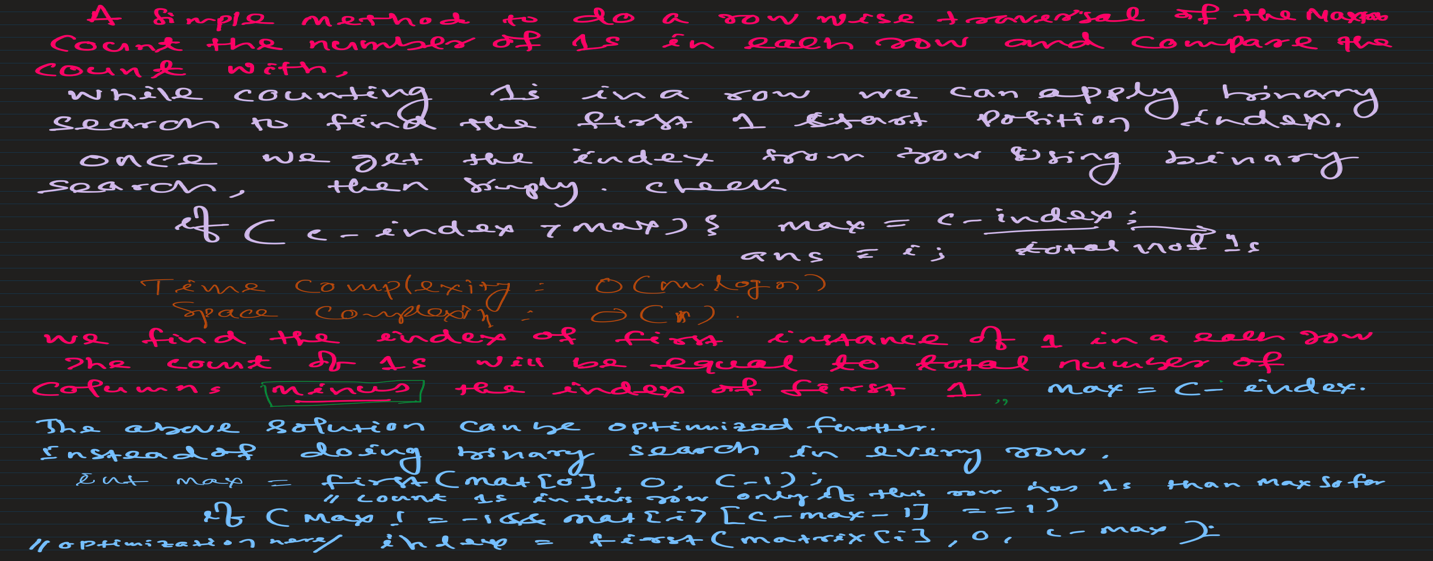 A simple method to do a row wise traversal of the Matrix
Count the number of 1s in each row and compare the
count with,
while counting 1s in a row we can apply binary
search to find the first 1 start position index.
once we get the index from row using binary
search, then simply. check
if ( c - index > max) { max = c - index;
ans = i; total no of 1s
Time Complexity: O(mlogn)
Space Complexity:
we find the index of first instance of 1 in a each row
The count of 1s will be equal to total number of
Columns minus the index of first 1 ,, max = c - index.
The above solution can be optimized further.
Instead of doing binary search in every row.
int max = first(mat[0], 0, c-1);
// count 1s in this row only if this row has 1s than max so far
if (max != -1 && mat[i][c-max-1] == 1)
// optimization here/ index = first(matrix[i], 0, c-max);